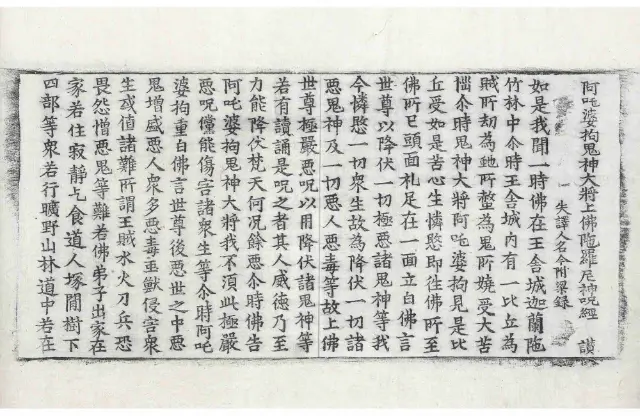 阿吒婆拘鬼神大將上佛陁羅尼神呪經 讃
失譯人名今附梁錄
如是我聞一時佛在王舍城迦蘭陁
竹林中尒時王舍城內有一比丘為
賊所劫為虵所螫為鬼所嬈受大苦
惱尒時鬼神大將阿吒婆拘見是比
丘受如是苦心生憐愍即往佛所至
佛所已頭面礼足在一面立白佛言
世尊以降伏一切極惡諸鬼神等我
今憐愍一切衆生故為降伏一切諸
惡鬼神及一切惡人惡毒等故上佛
世尊極嚴惡呪以用降伏諸鬼神等
若有讀誦是呪之者其人威德乃至
力能降伏梵天何況餘惡尒時佛告
阿吒婆拘鬼神大將我不湏此極嚴
惡呪儻能傷害諸衆生等尒時阿吒
婆拘重白佛言世尊後惡世之中惡
鬼增盛惡人衆多惡毒虫獸侵害衆
生或值諸難所謂王賊水火刀兵恐
畏怨憎惡鬼等難若佛弟子出家在
家若住寂靜乞食道人塚閒樹下
四部等衆若行曠野山林道中若在